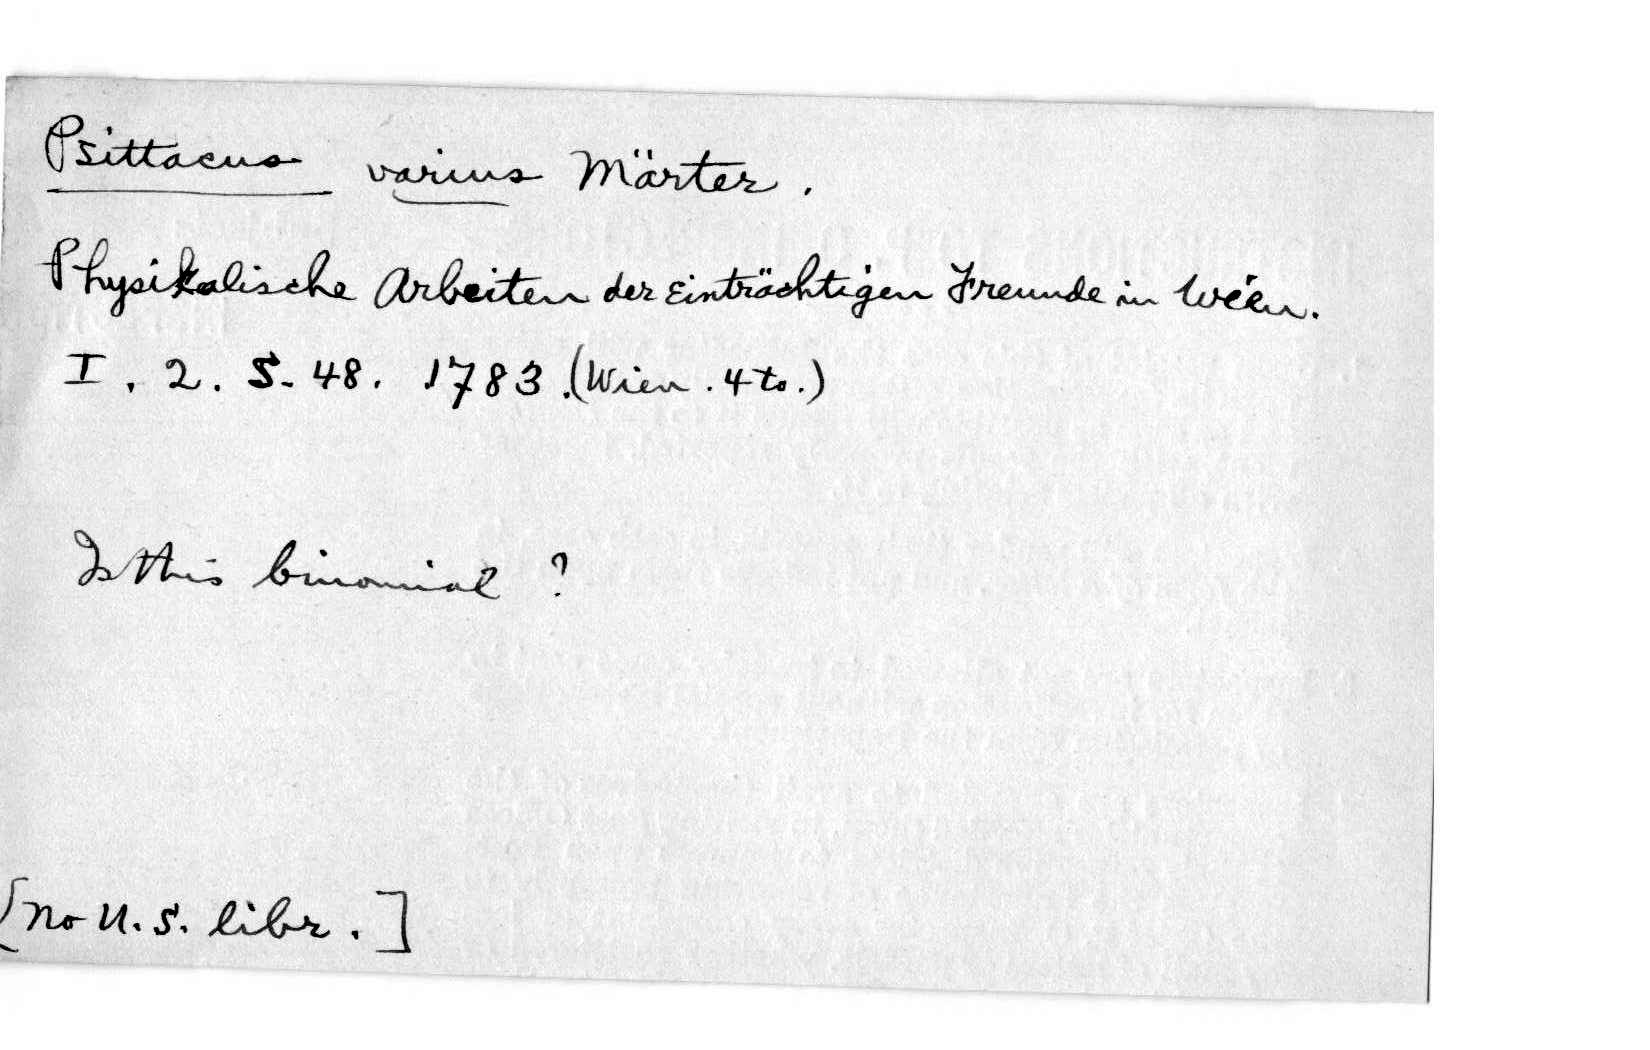 Psittacus varius Märter.
Physikalische Arbeiten der Einträchtigen Freunde in Wien.
I. 2. S. 48. 1783. (Wien. 4to.)
Is this binomial?
[no U.S. libr.]